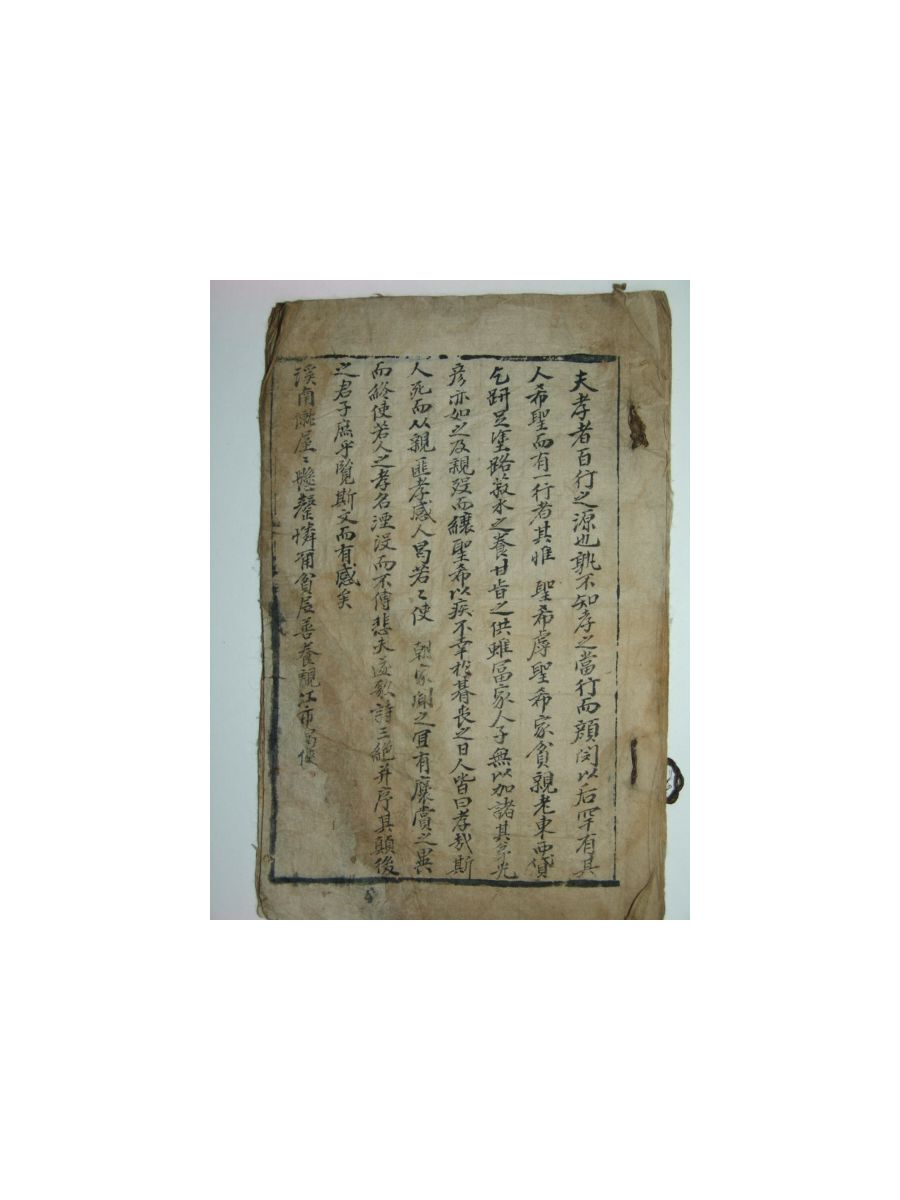 夫孝者百行之源也孰不知孝之當行而顔閔以后罕有其
人希聖而有一行者其惟 聖希虖聖希家貧親老東西貸
乞趼足塗路菽水之養甘旨之供雖冨家人子無以加諸其 光
彦亦如之及親歿而纕聖希以疾不幸於朞喪之日人皆曰孝哉斯
人死而以親匪孝感人曷若〻使 朝家聞之宜有褒賞之異
而終使若人之孝名湮沒而不傳悲夫遂歌詩三絶并序其顛後
之君子庶乎覽斯文而有感矣
溪南 屋〻 罄憐爾貧居善養親江市 傒